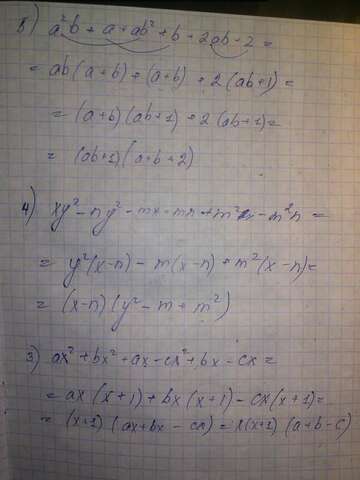 5) a²b + a + ab² + b + 2ab + 2 =
= ab(a+b) + (a+b) + 2(ab+1) =
= (a+b)(ab+1) + 2(ab+1) =
= (ab+1)(a+b+2)
4) xy² - ny² - mx - mn + m²x - m²n =
= y²(x-n) - m(x-n) + m²(x-n) =
= (x-n)(y² - m + m²)
3) ax² + bx² + ax - cx² + bx - cx =
= ax(x+1) + bx(x+1) - cx(x+1) =
= (x+1)(ax+bx - cx) = x(x+1)(a+b-c)